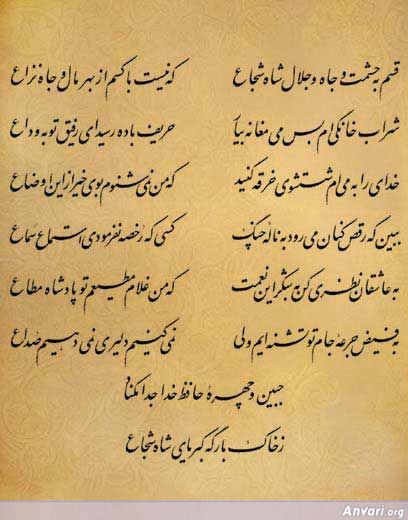 قسم به حشمت و جاه و جلال شاه شجاع که نیست با کسم از بهر مال و جاه نزاع
شراب خانگی ام بس می مغانه بیار حریف باده رسید ای رفیق توبه وداع
خدای را به می ام شستشوی خرقه کنید که من نمی شنوم بوی خیر از این اوضاع
ببین که رقص کنان می رود به ناله چنگ کسی که رخصه نفرمودی استماع سماع
به عاشقان نظری کن به شکر این نعمت که من غلام مطیعم تو پادشاه مطاع
به فیض جرعه جام تو تشنه ایم ولی نمی کنیم دلیری نمی دهیم صداع
جبین و چهره حافظ خدا جدا مکناد
ز خاک بارگه کبریای شاه شجاع
Anvari.org